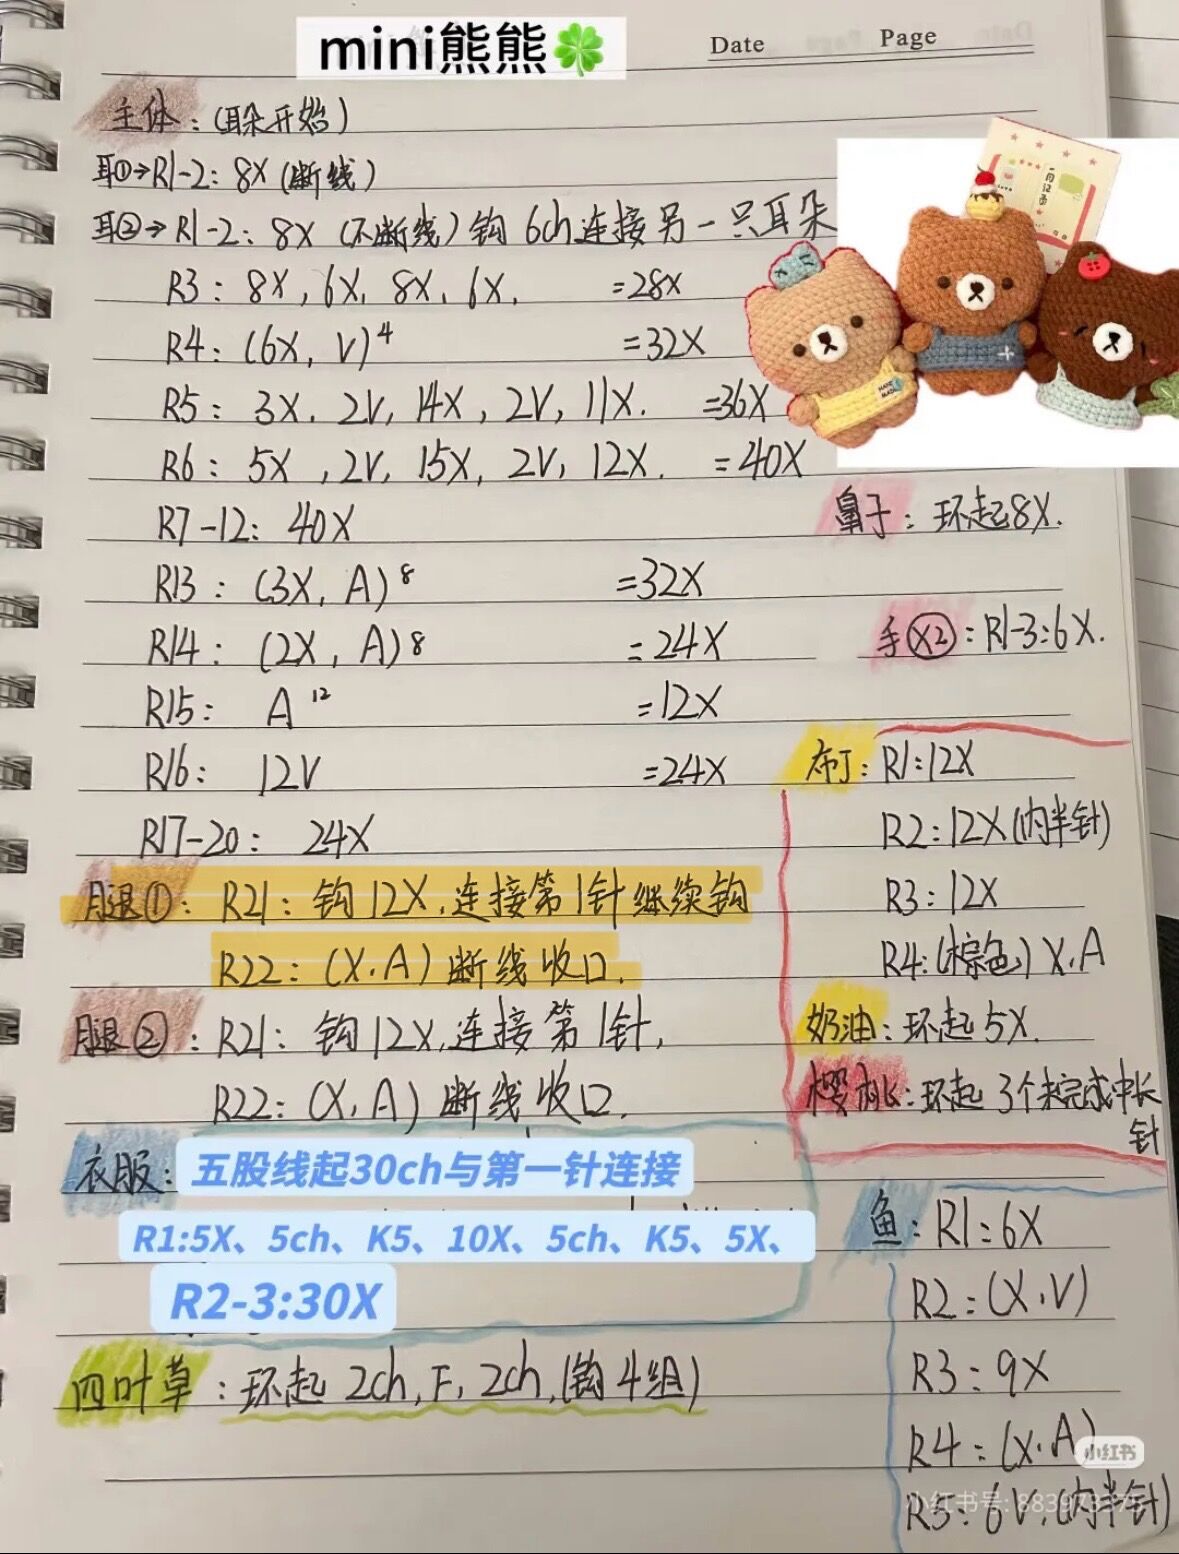 mini熊熊🍀
Date Page
主体:(耳朵开始)
耳①→R1-2: 8X (断线)
耳②→R1-2: 8X (不断线) 钩 6ch 连接另一只耳朵
R3: 8X, 6X, 8X, 6X. =28X
R4: (6X, V)⁴ =32X
R5: 3X. 2V, 14X, 2V, 11X. =36X
R6: 5X, 2V, 15X, 2V, 12X. =40X
R7-12: 40X
R13: (3X, A)⁸ =32X
R14: (2X, A)⁸ =24X
R15: A¹² =12X
R16: 12V =24X
R17-20: 24X
腿①: R21: 钩12X,连接第1针继续钩
R22: (X.A) 断线收口.
腿②: R21: 钩12X,连接第1针,
R22: (X, A) 断线收口.
衣服: 五股线起30ch与第一针连接
R1:5X、5ch、K5、10X、5ch、K5、5X、
R2-3:30X
四叶草: 环起 2ch, F, 2ch, (钩4组)
鼻子: 环起8X.
手(X2): R1-3:6X.
布丁: R1:12X
R2:12X(内半针)
R3:12X
R4:(棕色) X,A
奶油:环起5X.
樱桃:环起 3个未完成中长
针
鱼: R1:6X
R2:(X,V)
R3:9X
R4:(X.A)
R5: 6V,(内半针)
小红书